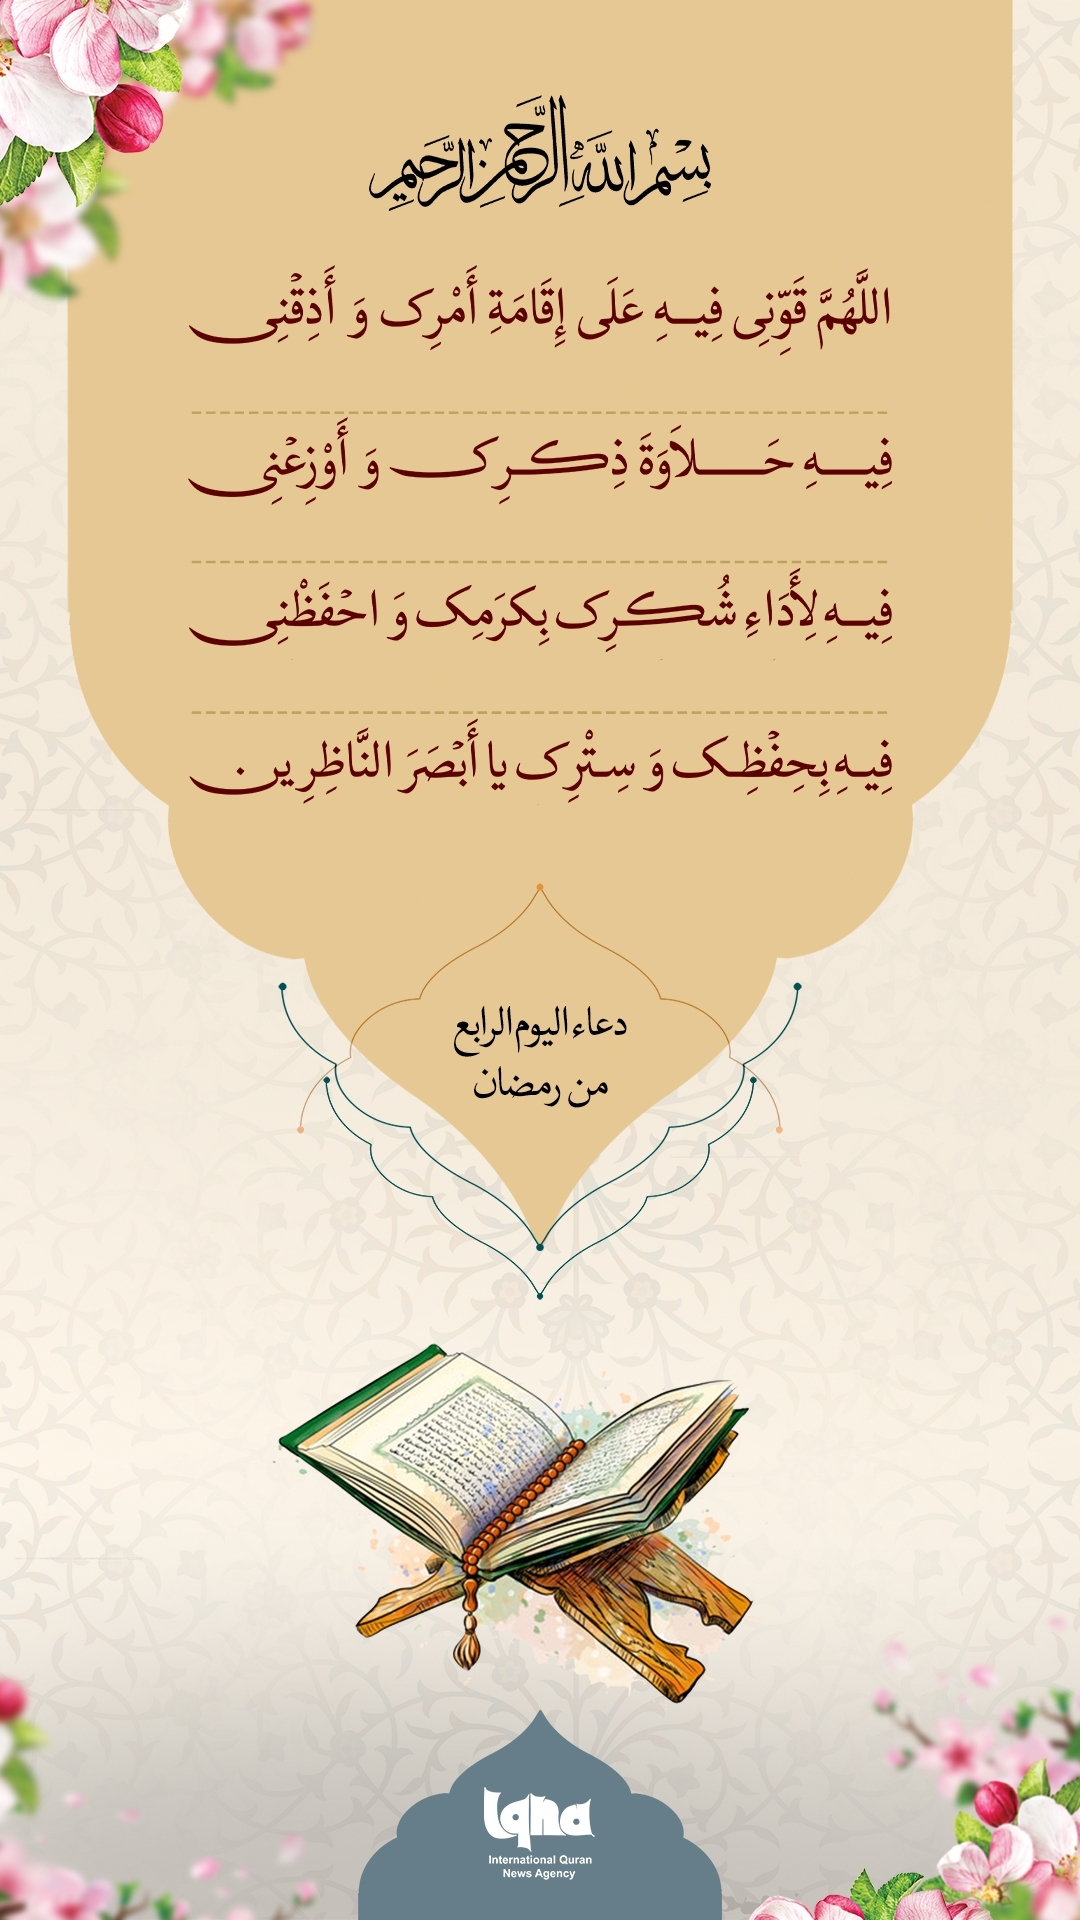 بِسْمِ اللَّهِ الرَّحْمَنِ الرَّحِيمِ
اللَّهُمَّ قَوِّنِی فِيهِ عَلَى إِقَامَةِ أَمْرِک وَ أَذِقْنِی
فِيهِ حَلاَوَةَ ذِکرِک وَ أَوْزِعْنِی
فِيهِ لِأَدَاءِ شُکرِک بِکرَمِک وَ احْفَظْنِی
فِيهِ بِحِفْظِک وَ سِتْرِک يا أَبْصَرَ النَّاظِرِين
دعاء اليوم الرابع
من رمضان
iqna
International Quran
News Agency